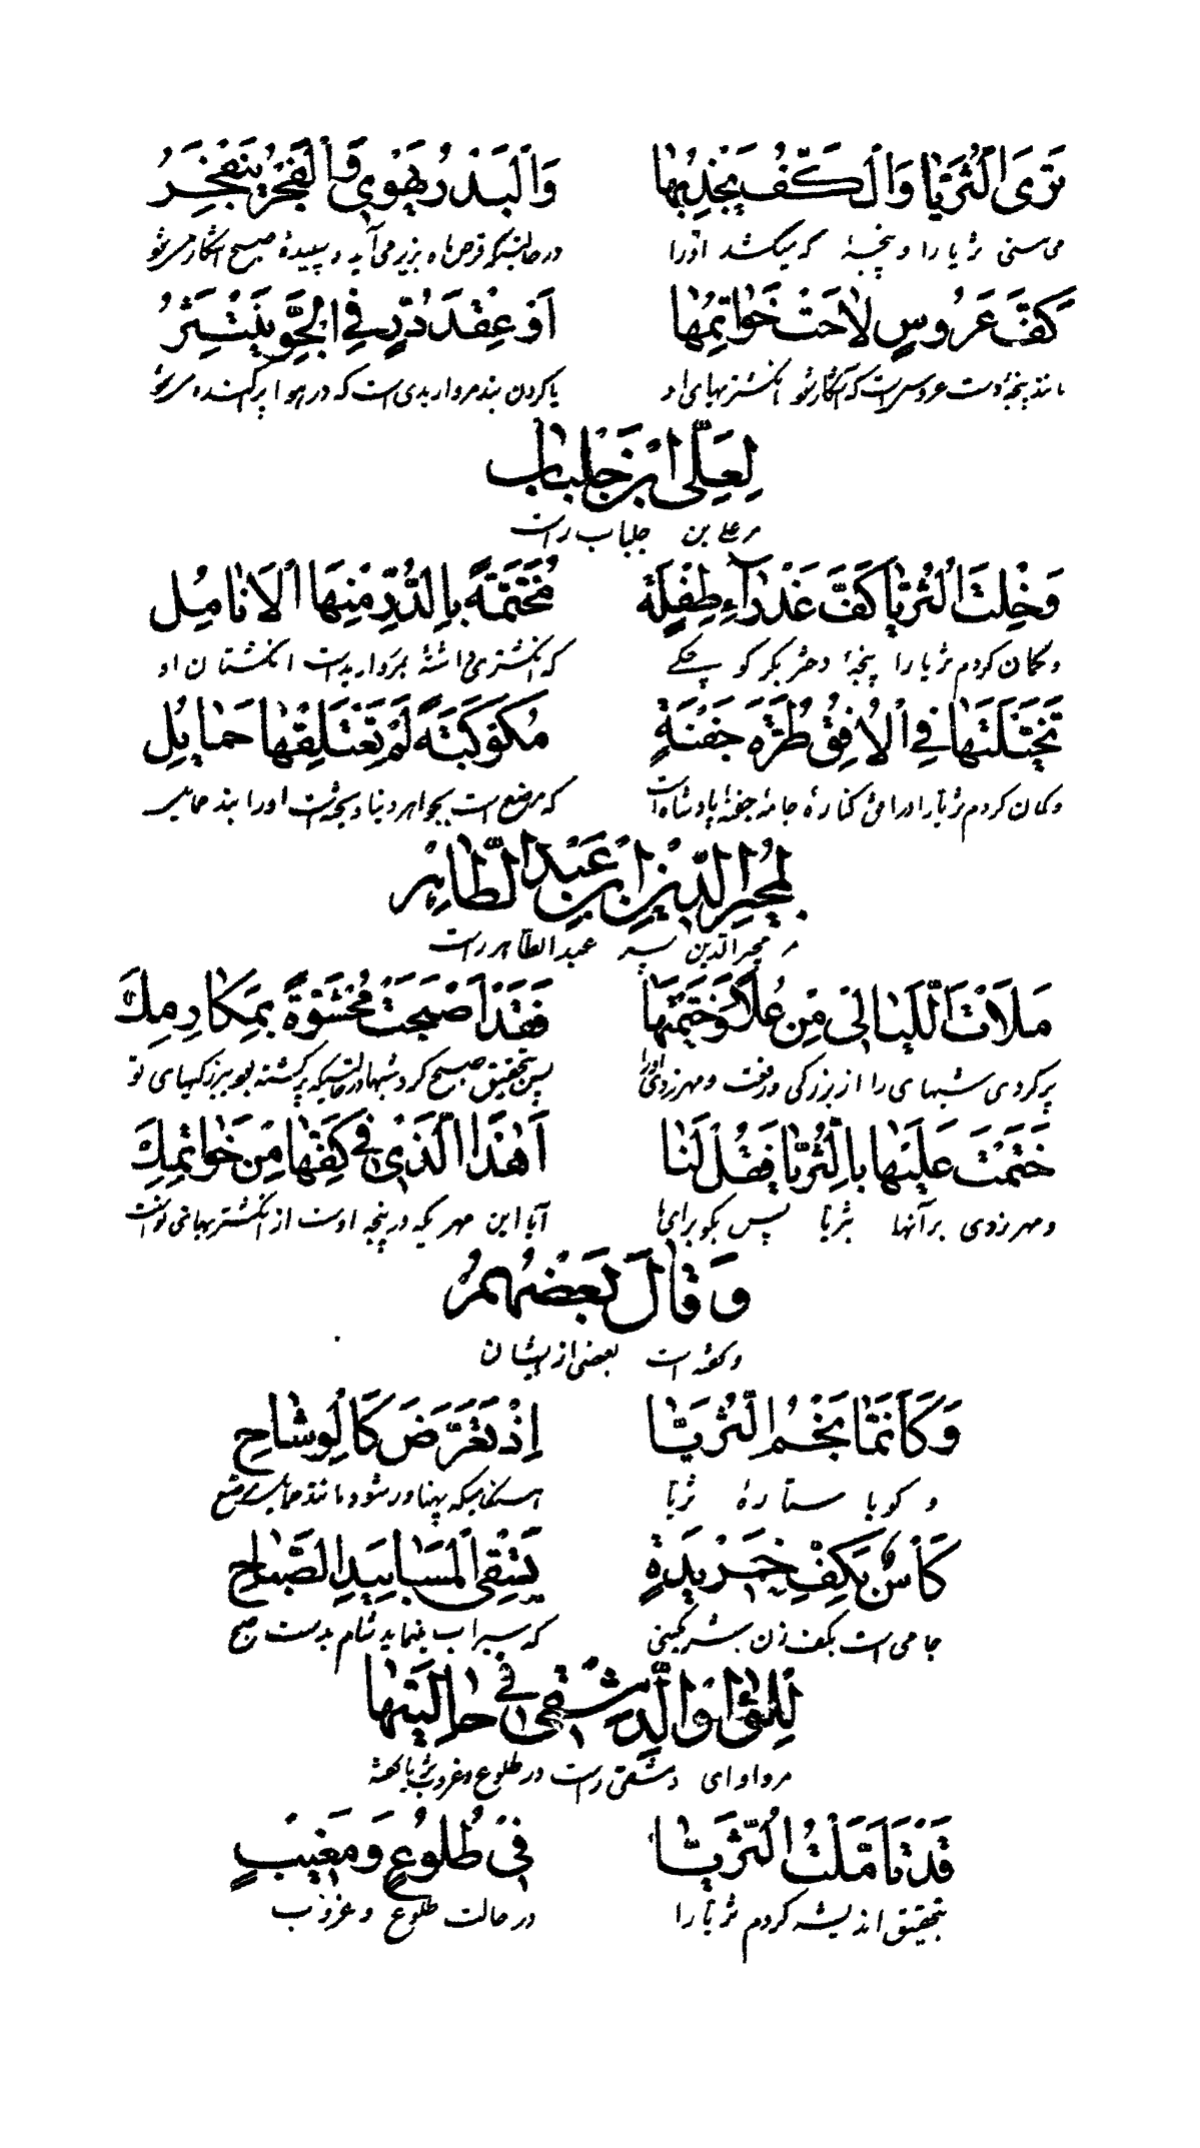 تَرَى الثُّرَيَّا وَالْكَفُّ يَجْذِبُهَا وَالْبَدْرُ يَهْوِي وَالْفَجْرُ يَنْفَجِرُ
می بینی ثریا را و پنجهٔ که میکشد او را در حالتیکه قرص ماه بزیر می آید و سپیدهٔ صبح آشکار میشود
كَفَّ عَرُوسٍ لَاحَتْ خَوَاتِمُهَا اَوْ عِقْدَ دُرٍّ فِي الْجَوِّ يَنْتَثِرُ
مانند پنجهٔ دست عروسی است که آشکار شود انگشتریهای او یا کردن بند مرواریدی است که در هوا پراکنده میشود
لِعَلِيّ ابْن جَلْبَاب
مر علی بن جلباب راست
وَخِلْتُ الثُّرَيَّا كَفَّ عَذْرَآءِ طِفْلَةٍ مُخَتَّمَةً بِالدُّرِّ مِنْهَا الْاَنَامِلُ
و کمان کردم ثریا را پنجهٔ دختر بکر کو که انکشتری داشتهٔ بمروارید است انکشتان او
تَخَيَّلْتَهَا فِي الْاُفْقِ طُرَّةَ جَفْنَةٍ مُكَوْكَبَةً لَمْ تَعْتَلِقْهَا حَمَايِلُ
و کمان کردم ثریا را در افق کنارهٔ جامهٔ جفنهٔ پادشاه است که مرصع است بجواهر و نیاویخته است او را بند حمایل
لِمُجِيرِ الدِّينِ ابْنِ عَبْدِ الطَّاهِرِ
مر مجیر الدین پسر عبد الطاهر راست
مَلَأْتَ اللَّيَالِيَ مِنْ عُلًا وَخَتَمْتَهَا فَقَدْ اَصْبَحَتْ مَحْشُوَّةً بِمَكَارِمِكَ
پر کردی شبهای را از بزرکی و رفعت و مهر زدی او را پس بتحقیق صبح کرد شبها در حالتیکه پر کشته بود ببزرکیهای تو
خَتَمْتَ عَلَيْهَا بِالثُّرَيَّا فَقُلْ لَنَا اَهٰذَا الَّذِي فِي كَفِّهَا مِنْ خَوَاتِمِكَ
و مهر زدی بر آنها بثریا پس بکو برای ما آیا این مهر یکه در پنجه اوست از انکشتریهای تو است
وَقَالَ بَعْضُهُمْ
و کفته است بعضی از ایشان
وَكَاَنَّمَا نَجْمُ الثُّرَيَّا اِذْ تَعَرَّضَ كَالْوِشَاحِ
و کویا ستارهٔ ثریا هنکامیکه پهناور شود مانند حمایل
كَأْسٌ بِكَفِّ خَرِيدَةٍ يَسْقِي الْمَسَا بِيَدِ الصَّبَاحِ
جامی است بکف زن شرمکینی که سیراب مینماید شام بدست صبح
لِلْوَأْوَا الدِّمَشْقِيّ فِي حَالَتَيْهَا
مر واوای دمشقی راست در طلوع و غروب ثریا کفته
قَدْ تَاَمَّلْتُ الثُّرَيَّا فِي طُلُوعٍ وَمَغِيبٍ
بتحقیق اندیشه کردم ثریا را در حالت طلوع و غروب